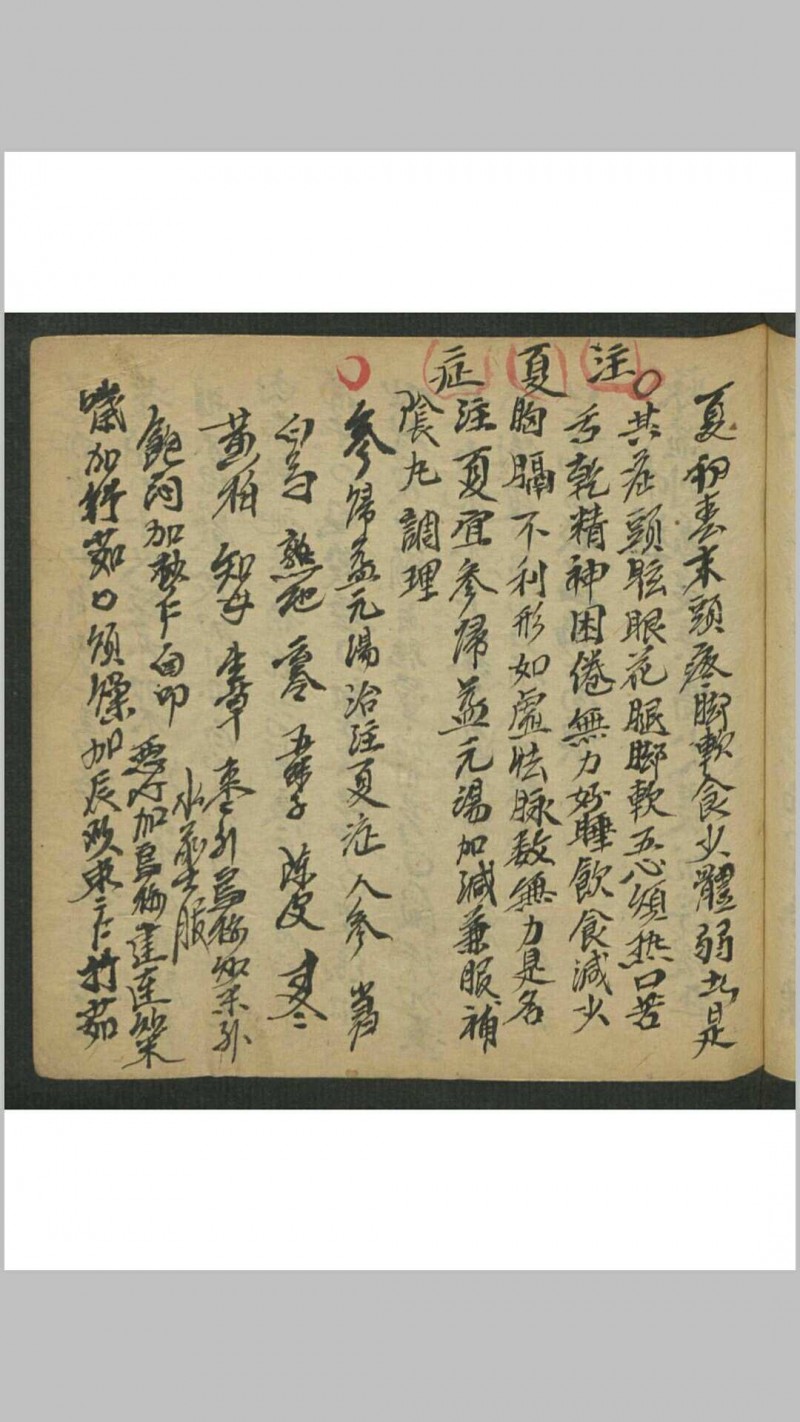 注夏症
夏初春末頭疼脚軟食少體弱此是
其症頭眩眼花腿脚軟五心煩热口苦
舌乾精神困倦無力好睡飲食減少
胸膈不利形如虛怯脉数無力是名
注夏宜參歸益元湯加減兼服補
陰丸調理
參歸益元湯治注夏症人參 當归
白芍 熟地 茯苓 五味子 陳皮 麦冬
黄柏 知母 生草 枣引烏梅粳米外
水煎服
飽悶加砂仁白叩 恶心加烏梅連
嗽加 口煩燥加辰砂 竹茹